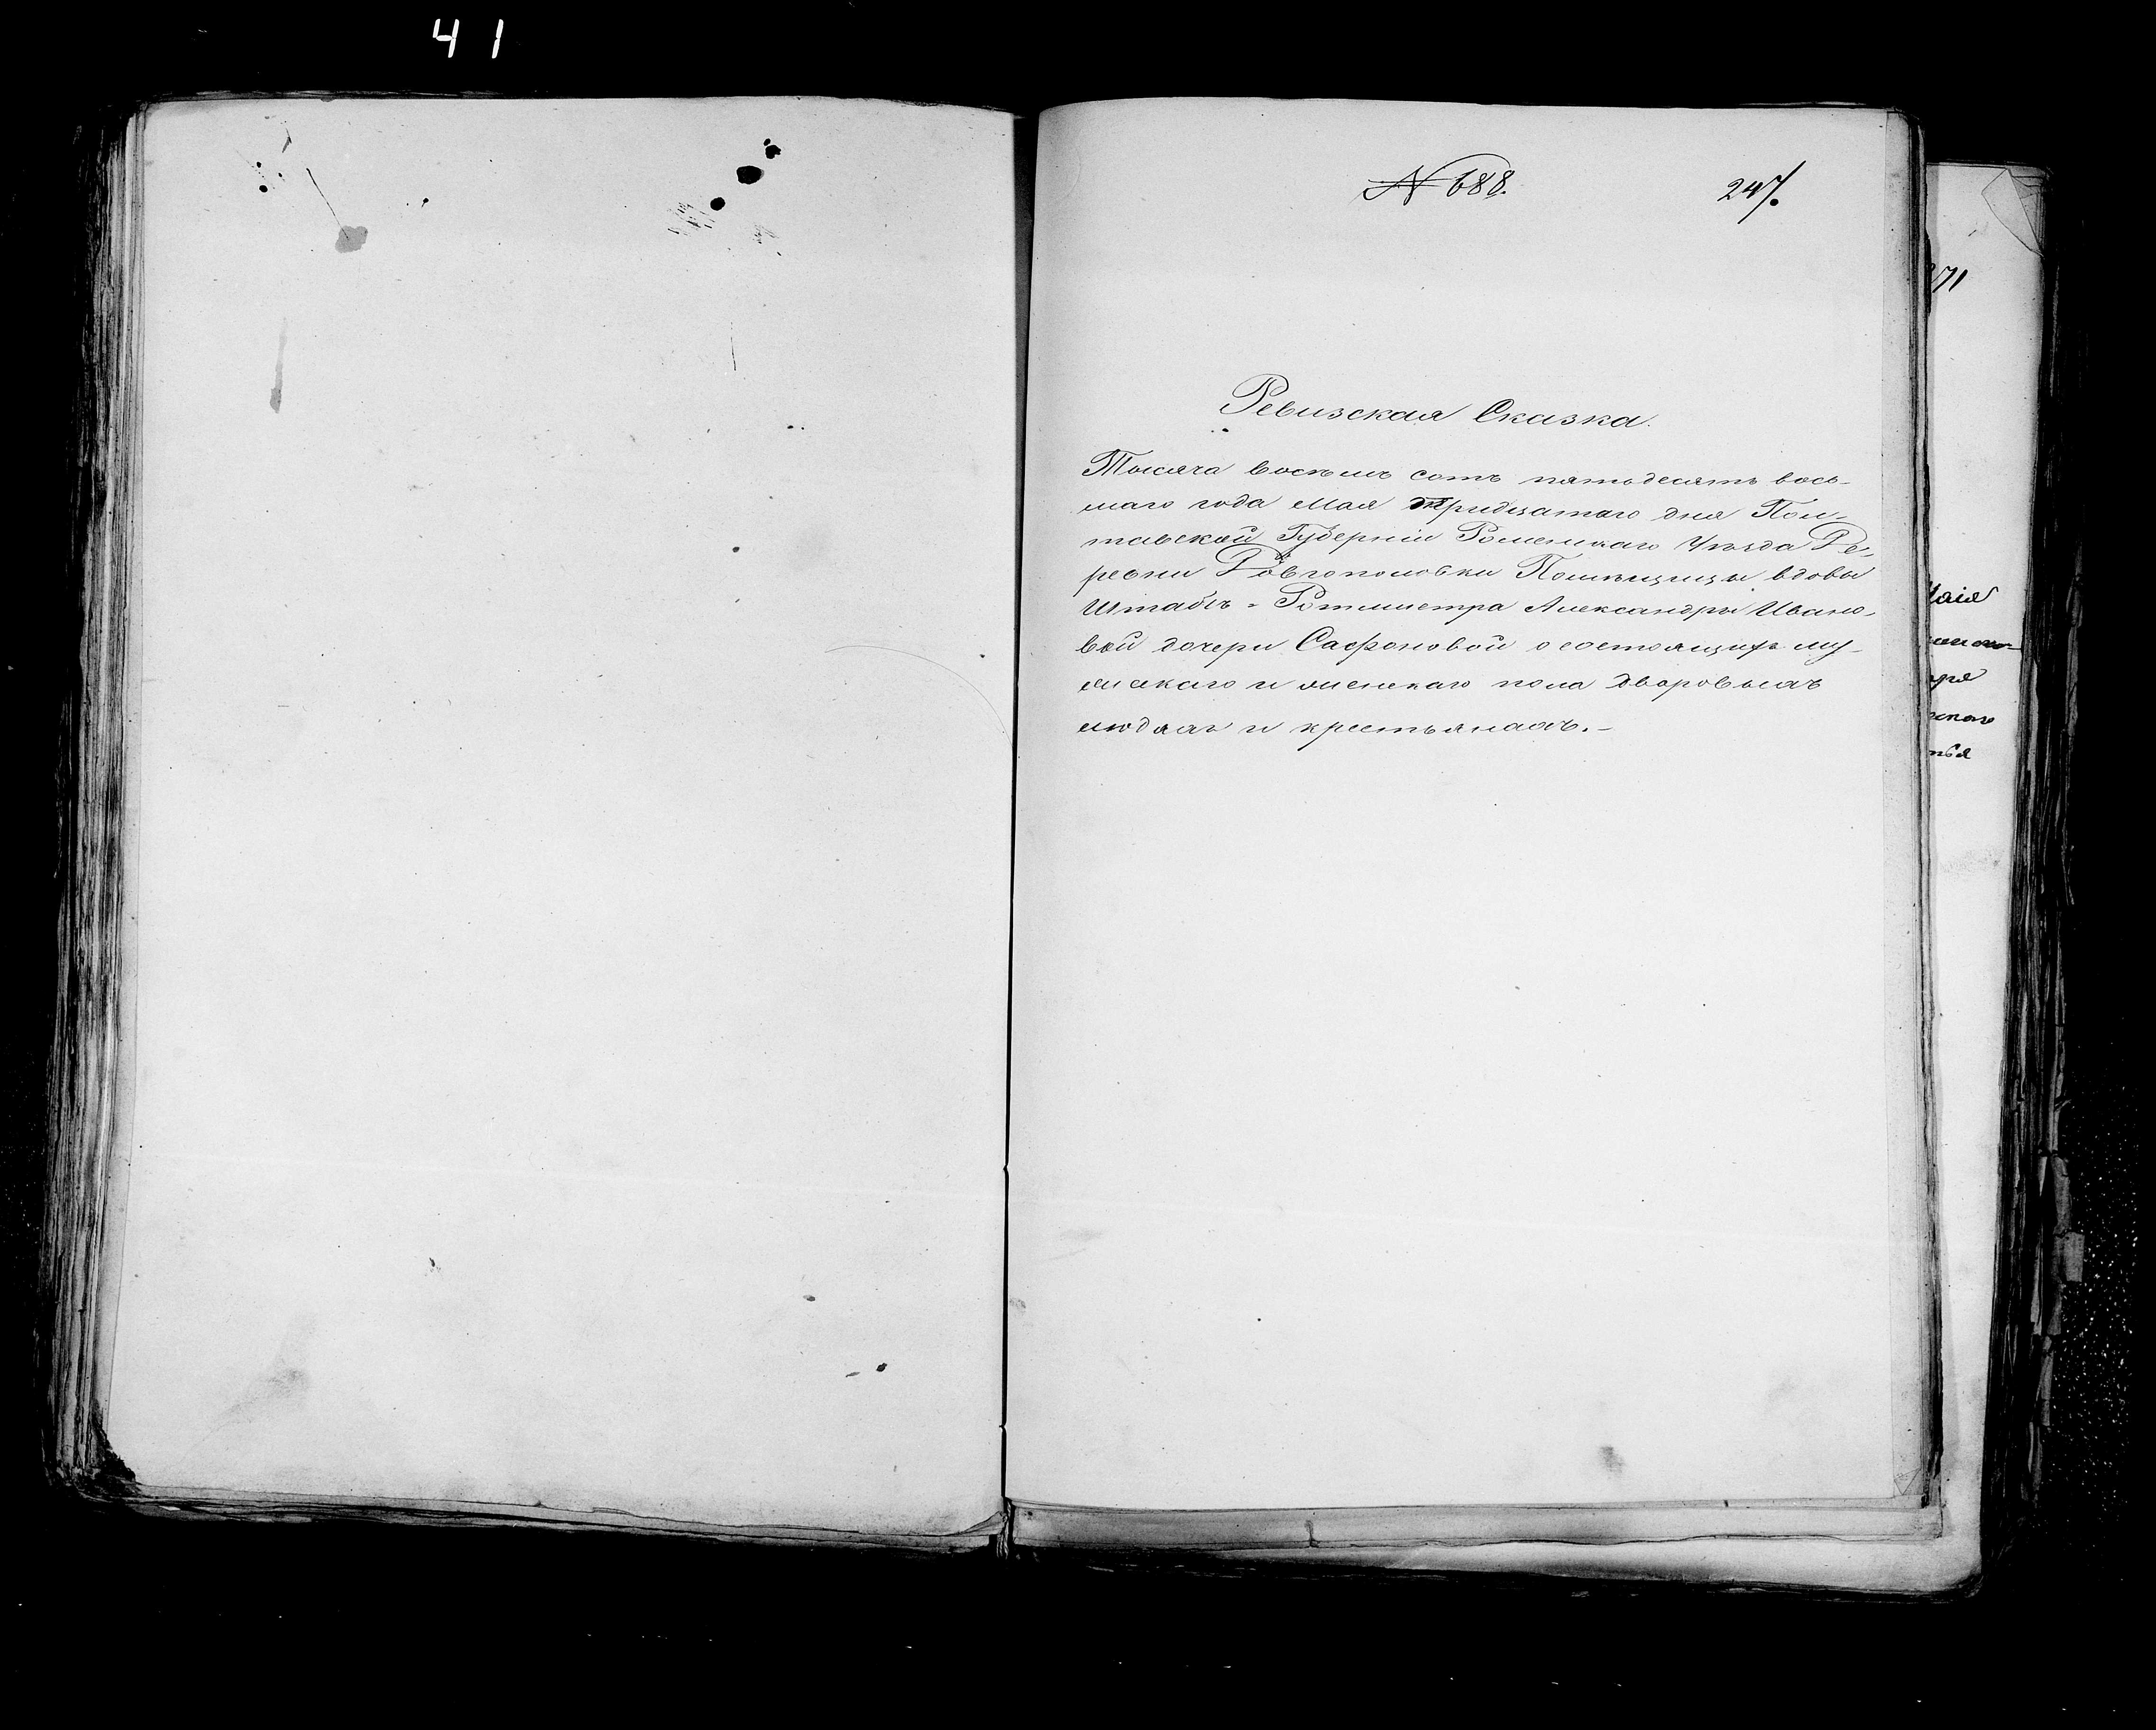 41
№ 688.
247.
Ревизская Сказка.
Тысяча восемь сотъ пятьдесятъ вось-
маго года Мая тридцатаго дня Пол-
тавской Губерніи Роменскаго Уѣзда Де-
ревни Довгополовки Помѣщицы вдовы
Штабъ-Ротмистра Александры Ивано-
вой дочери Сафоновой о состоящихъ му-
жскаго и женскаго пола дворовыхъ
людяхъ и крестьянахъ.-
271